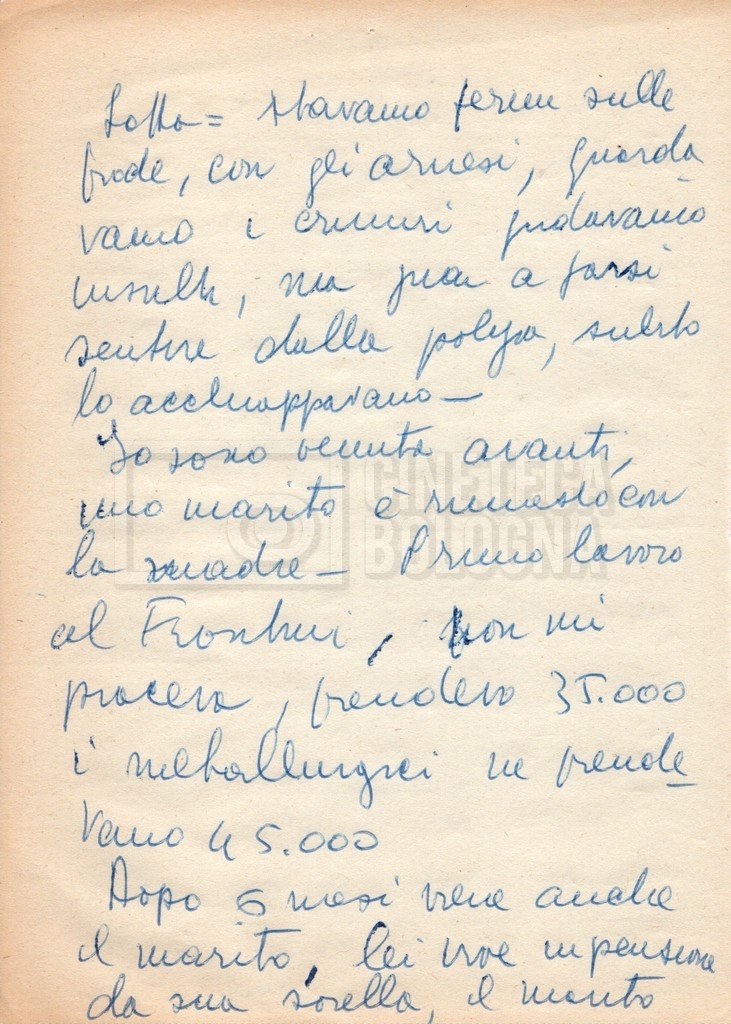 Lotta = stavamo fermi sulle
prode, con gli arnesi, guarda
vamo i crumiri gridavamo
insulti, ma guai a farsi
sentire dalla polizia, subito
lo acchiappavano —
Io sono venuta avanti,
mio marito è rimasto con
la madre — Primo lavoro
al Frontini, non mi
piaceva, prendevo 35.000
i metallurgici ne prende
vano 45.000
Dopo 6 mesi viene anche
il marito, lei vive in pensione
da sua sorella, il marito
CINETECA
BOLOGNA